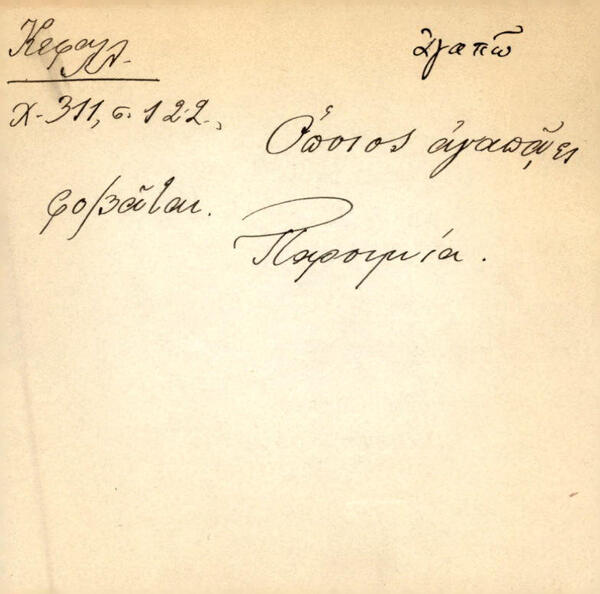 Κεφαλλ.
ἀγαπῶ
χ. 311, σ. 122.,
Ὅποιος ἀγαπᾷει
φοβᾶται.
Παροιμία.